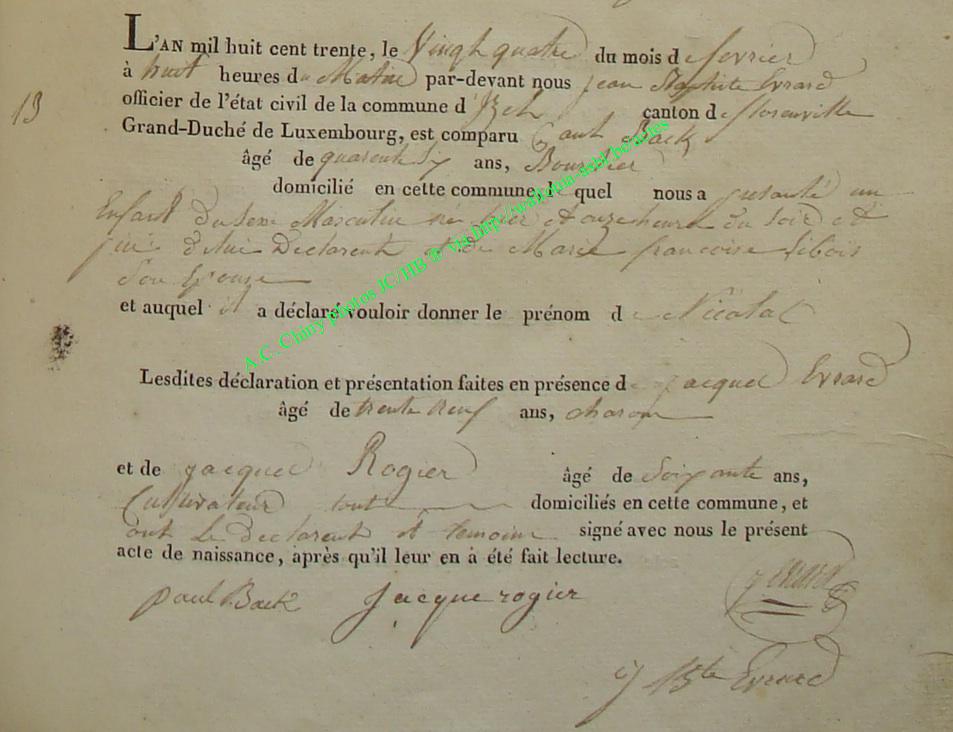 L'AN mil huit cent trente, le Vingt quatre du mois de fevrier
à huit heures du Matin par-devant nous jean Baptiste Evrard
13
officier de l'état civil de la commune d'Izel canton de florenville
Grand-Duché de Luxembourg, est comparu Paul Back
âgé de quarente ans,
domicilié en cette commune, le quel nous a presenté un
Enfant du sexe Masculin né hier à onze heure du soir et
de lui Declarent et de Marie francoise libois
Son Epouse
et auquel il a déclaré vouloir donner le prénom de Nicolas
Lesdites déclaration et présentation faites en présence de jacque Evrard
âgé de trente neuf ans, charon
et de jacque Rogier âgé de Soixante ans,
Cultivateur tout domiciliés en cette commune, et
ont Le declarent et temoins signé avec nous le présent
acte de naissance, après qu'il leur en à été fait lecture.
paul Back Jacque rogier j evrard
j Bte Evrard
A.C. Chiny photos JC/HB ® via http://wallonia-asbl.be/actes